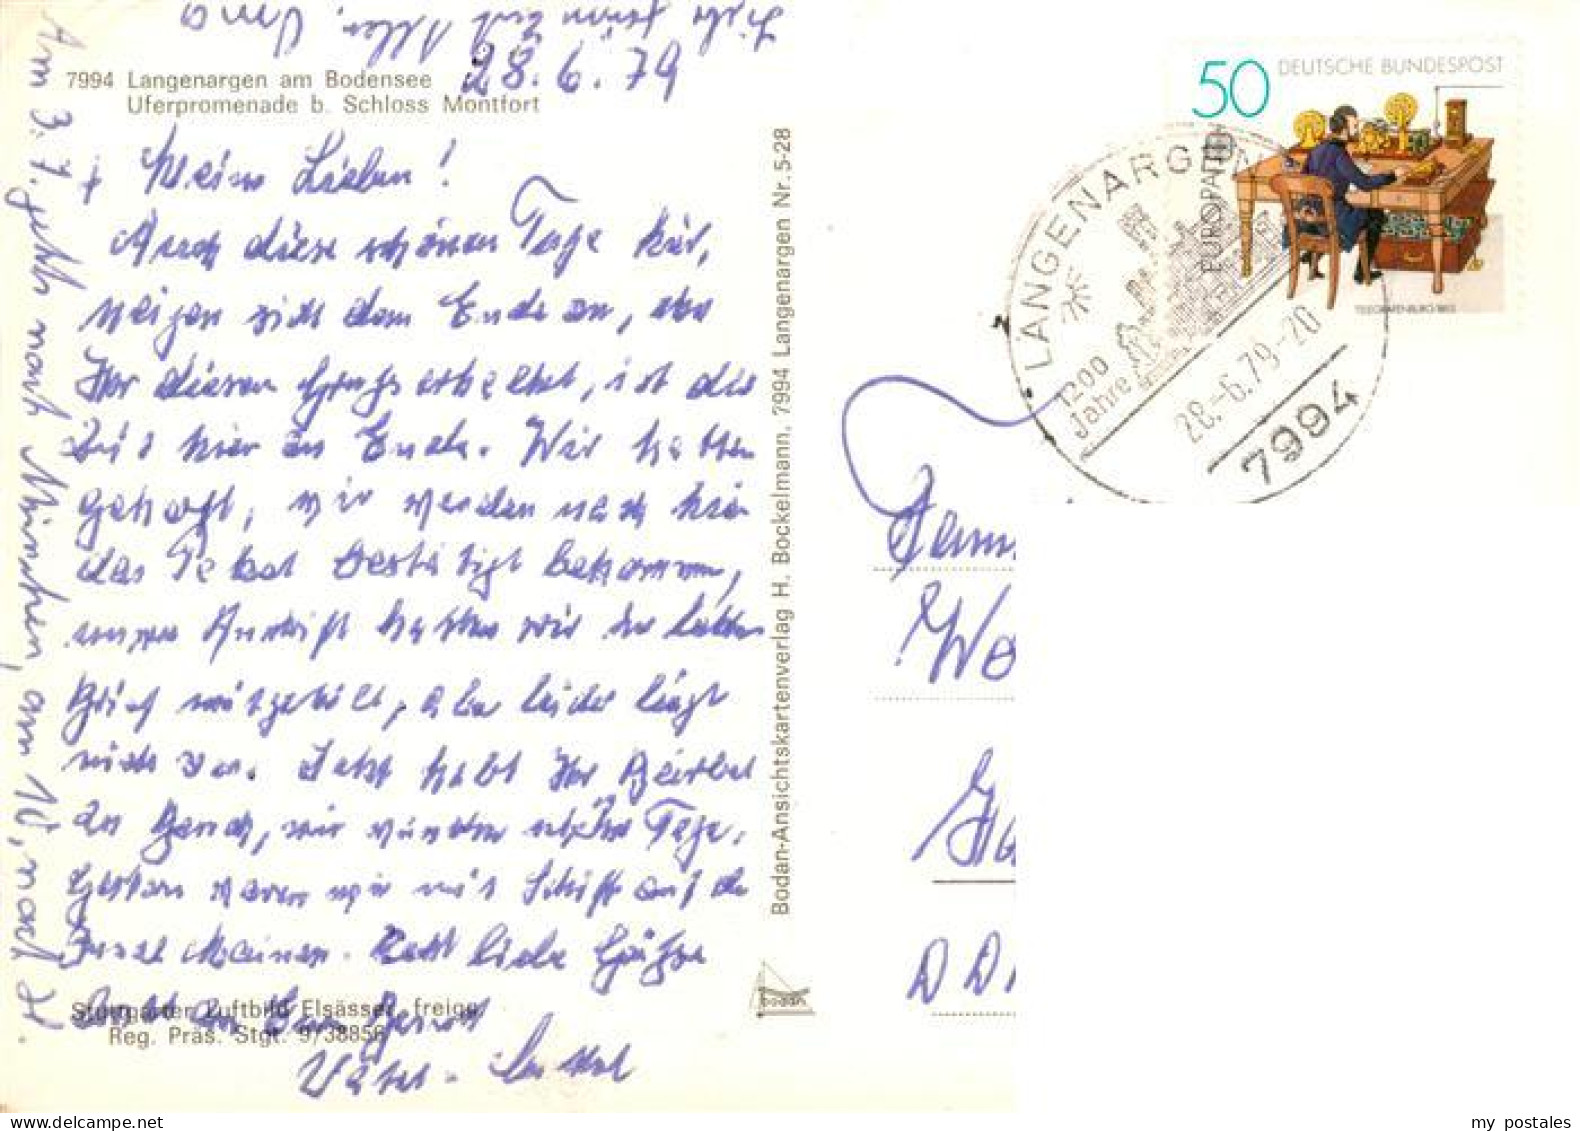 Liebe
Oma
28.6.79
7994 Langenargen am Bodensee
Uferpromenade b. Schloss Montfort
Meine Lieben!
Auch diese schönen Tage hier,
neigen sich dem Ende zu, ehe
Ihr diesen Gruß erhaltet, ist die
Zeit hier zu Ende. Wir hatten
gehofft, wir werden nach hier
das Paket bestätigt bekommen,
unsere Anschrift hatten wir im letzten
Brief mitgeteilt, aber leider liegt
nichts vor. Jetzt habt Ihr Bärbel
zu Besuch, wir wünschen schöne Tage.
Gestern waren wir mit Schiff auf der
Insel Mainau. Recht liebe Grüße
Stuttgarter Luftbild Elsässer, freigg.
Reg. Präs. Stgt. 9/38856
Am 3.7. geht's nach München, am 10. nach H
Bodan-Ansichtskartenverlag H. Bockelmann, 7994 Langenargen Nr. 5-28
bodan
50 DEUTSCHE BUNDESPOST
EUROPA
LANGENARGEN
1200
Jahre
28.-6.79-20
7994
Fam
Wo
DD
my postales